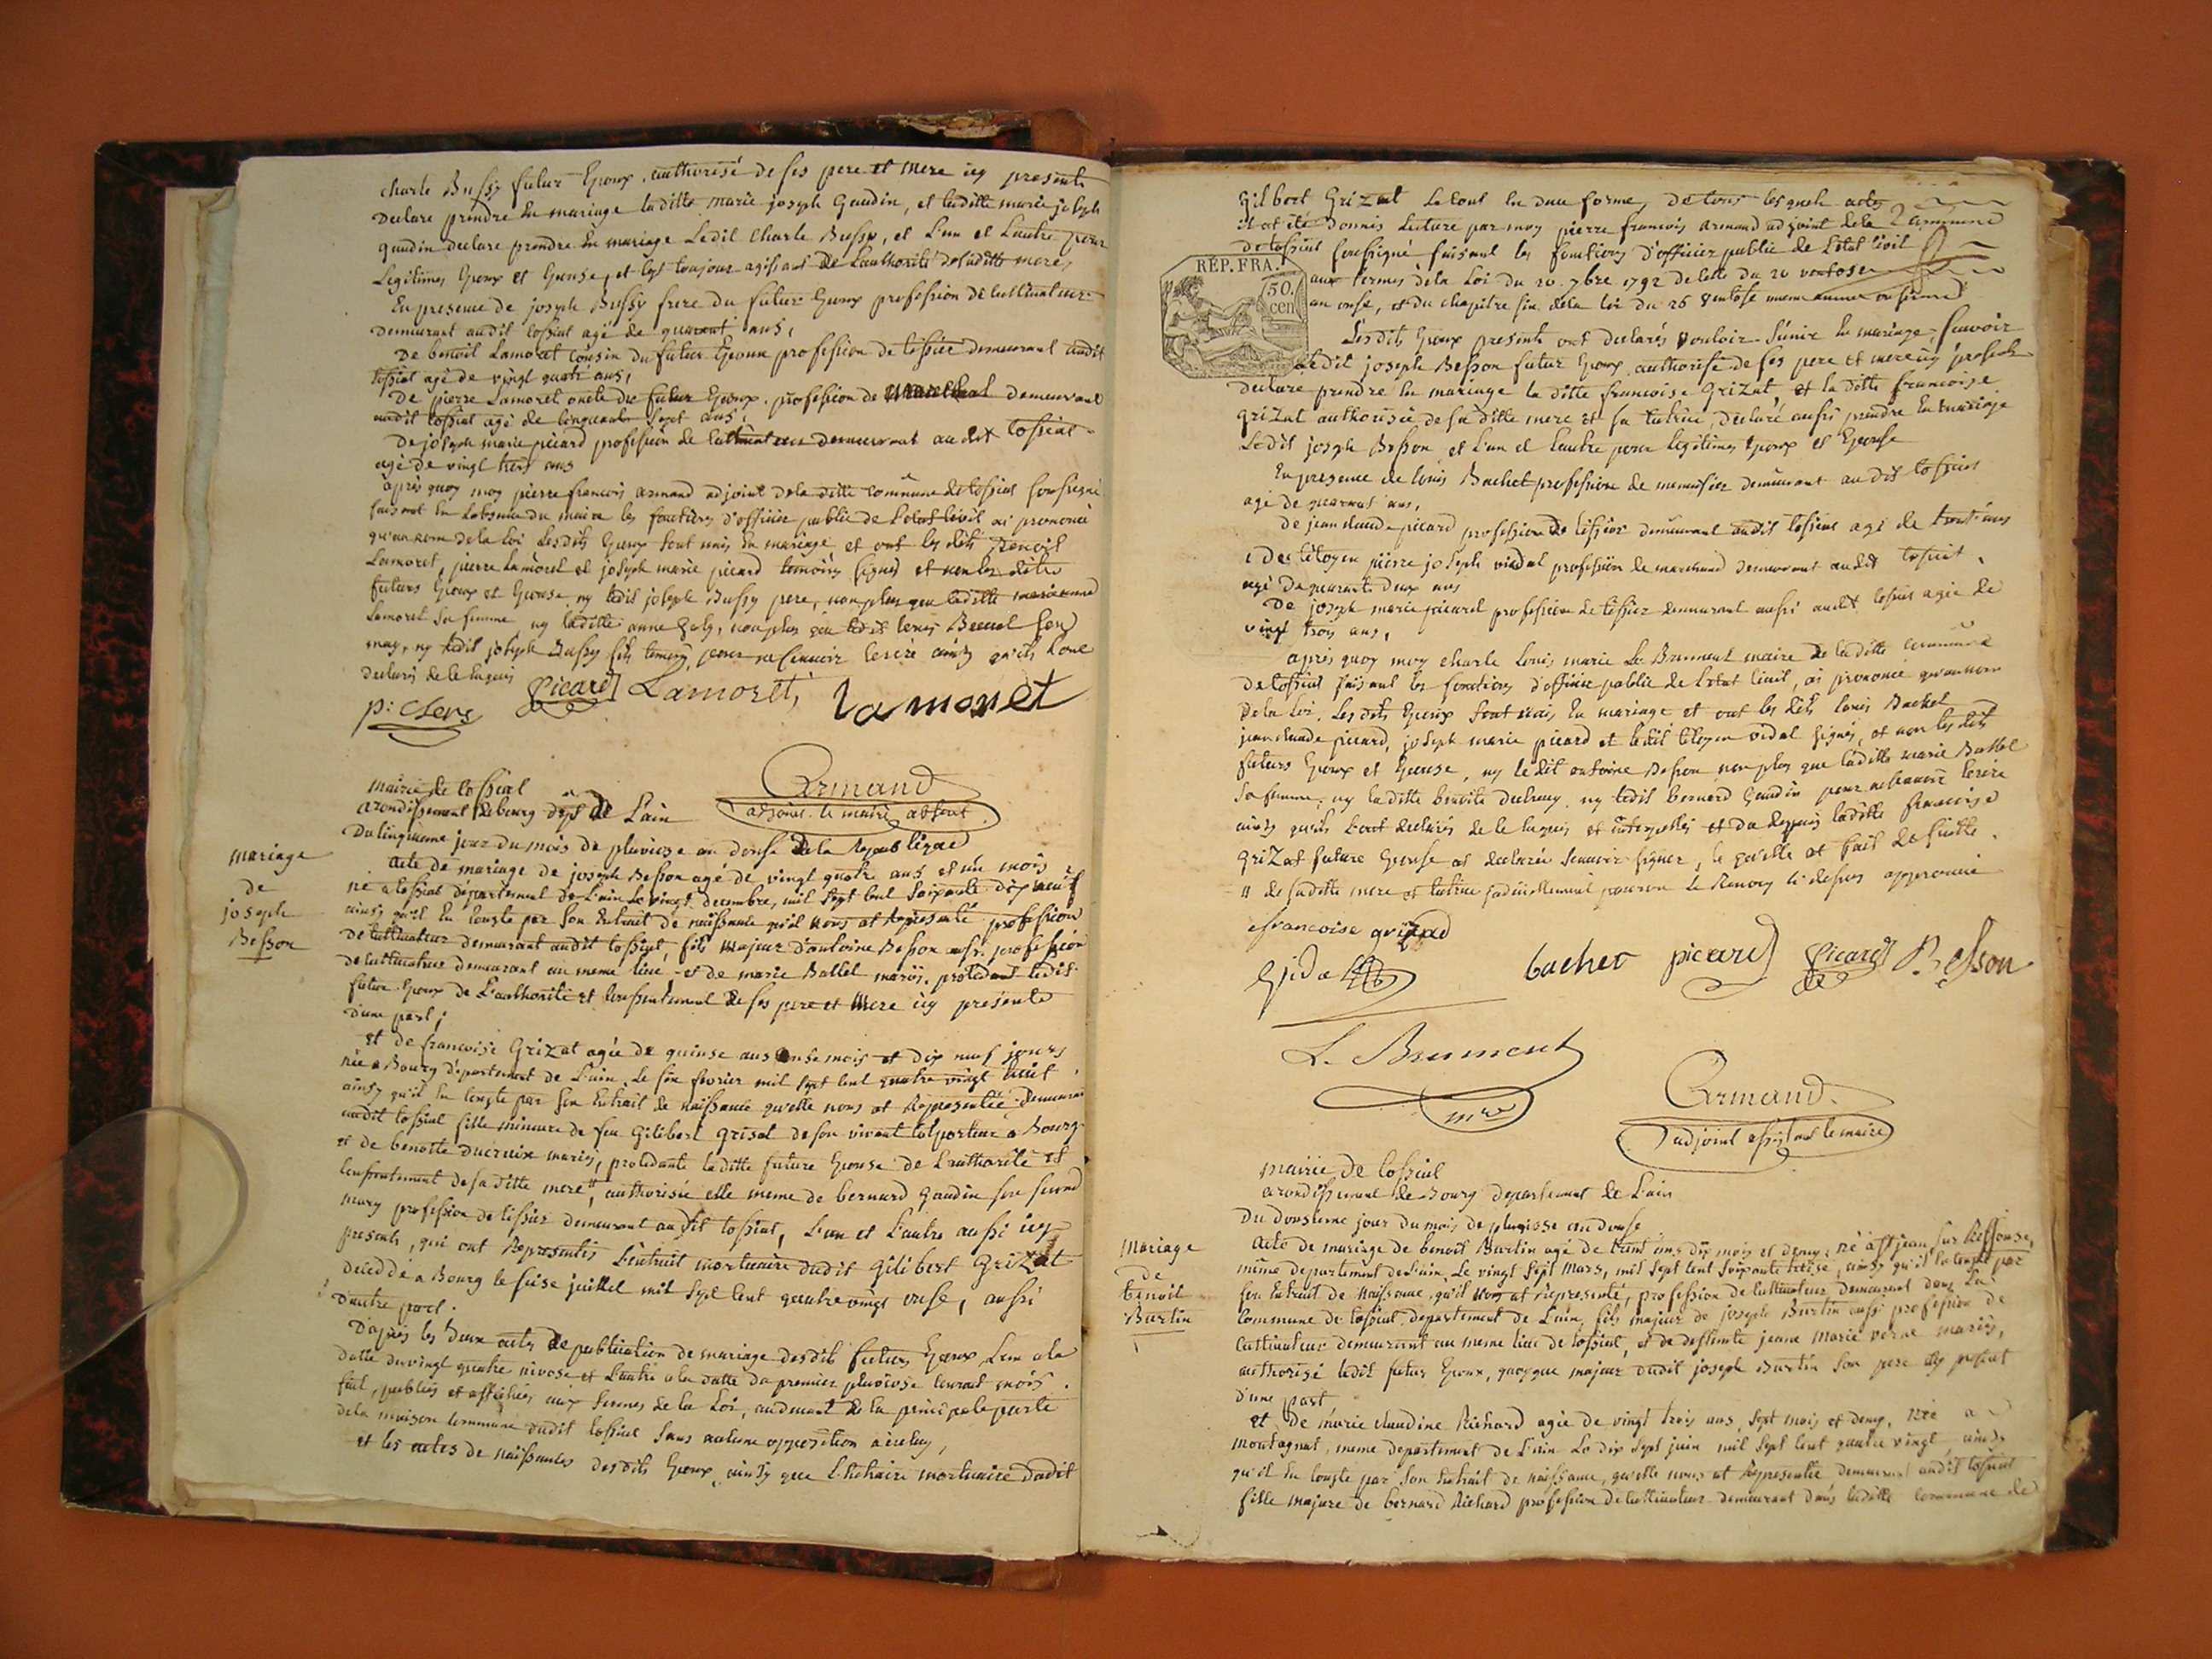 charle Bussy futur Epoux authorisé de ses pere et mere icy presents
Declare prendre En mariage laditte marie joseph Gaudin, et laditte marie joseph
gaudin declare prendre En mariage Ledit Charle Bussy, et L'un et L'autre pour
Legitimes Epoux et Epouse, et toujour agissant de L'authorité de laditte mere,
En presence de joseph Bussy frere du futur Epoux profession de cultivateur
demeurant audit tossiat agé de quarant ans,
De benoit Lamoret cousin du futur Epoux profession de tissier demeurant audit
tossiat agé de vingt quatre ans,
De pierre Lamoret oncle du futur Epoux profession de marechal demeurant
audit tossiat agé de cinquante sept ans,
De joseph marie picard profession de cultivateur demeurant audit tossiat
agé de vingt trois ans
après quoy moy pierre francois armand adjoint dela ditte commune de tossiat soussigné
faisant En L'absence du maire les fonctions d'officier public de L'etat civil ai prononcé
qu'au nom dela Loi Lesdits Epoux sont unis En mariage et ont les dits Benoit
Lamoret, pierre Lamoret et joseph marie picard temoins signés et non les dits
futurs Epoux et Epouse ny ledit joseph Bussy pere, non plus que laditte marianne
Lamoret sa femme ny laditte anne joly, non plus que ledit
mary, ny ledit joseph Bussy fils temoin, pour ne scavoir Ecrire ainsy qu'ils L'ont
declarés de le enquis
p: Clerc Picard Lamoret, Lamoret
Armand
adjoint le maire absent
mairie de tossiat
arondissement de bourg dept de L'ain
Du cinquieme jour du mois de pluviose an douse de la Republique
mariage
de
joseph
Besson
acte de mariage de joseph Besson agé de vingt quatre ans et un mois
né a tossiat departement de L'ain Le vingt decembre, mil sept cent soixante dix neuf
ainsy qu'il En conste par son Extrait de naissance qu'il nous at Representé profession
de cultivateur demeurant audit tossiat, fils majeur d'antoine Besson aussi profession
de cultivateur demeurant au meme lieu et de marie Ballet mariés, procedant ledit
futur Epoux de L'authorité et consentement de ses pere et mere icy presents
d'une part;
et de francoise Grizat agée de quinse ans onse mois et dix neuf jours
née a Bourg departement de L'ain Le six fevrier mil sept cent quatre vingt huit
ainsy qu'il En conste par son Extrait de naissance qu'elle nous at Representée demeurant
audit tossiat fille mineure de feu Gilibert grisat de son vivant colporteur a Bourg
et de benoite ducruix mariés, procedante laditte future Epouse de L'authorité et
consentement de sa ditte mere", authorisée elle meme de bernard Gaudin son second
mary profession de tissier demeurant audit tossiat, L'un et L'autre aussi icy
presents, qui ont Representés L'extrait mortuaire dudit Gilibert Grizat
decedé a Bourg le seise juillet mil sept cent quatre vingt onse, aussi
d'autre part.
D'après les deux actes de publication de mariage desdits futurs Epoux L'un a la
datte du vingt quatre nivose et L'autre a la datte du premier pluviose courant mois
fait, publiés et affichés aux termes de la Loi, audevant de la principale porte
dela maison commune dudit tossiat sans aucune opposition a iceluy,
et les actes de naissances desdits Epoux, ainsy que L'extraire mortuaire dudit
Gilbert Grizat Le tout En due forme, de tous lesquels actes
il at été Donnés Lecture par moy pierre francois armand adjoint dela commune
de tossiat soussigné faisant les fonctions d'officier public de L'etat civil
REP. FRA.
50.
cen
aux termes dela Loi du 20 7bre 1792 de celle du 20 ventose
an onse, et du chapitre six dela loi du 26 ventose
Lesdits Epoux presents ont declarés vouloir s'unir En mariage scavoir
Ledit joseph Besson futur Epoux authorisé de ses pere et mere icy presents
declare prendre En mariage la ditte francoise Grizat, et la ditte francoise
Grizat authorisée de sa ditte mere et sa tutrice, declaré aussi prendre En mariage
Ledit joseph Besson et L'un et L'autre pour Legitimes Epoux et Epouse
En presence de louis Bachet profession de menuisier demeurant audit tossiat
agé de quarant ans,
de jean claude picard profession de tissier demeurant audit tossiat agé de trent'ans
De citoyen pierre joseph vidal profession de marchand demeurant audit tossiat,
agé de quarante deux ans
De joseph marie picard profession de tissier demeurant aussi audit tossiat agé de
vingt trois ans,
après quoy moy charle Louis marie Le Brument maire de laditte commune
de tossiat faisant les fonctions d'officier public de L'etat civil, ai prononcé qu'au nom
dela Loi, Lesdits Epoux sont unis En mariage et ont les dits louis Bachet
jean claude picard, joseph marie picard et ledit citoyen vidal signés, et non les dits
futurs Epoux et Epouse, ny le dit antoine Besson non plus que laditte marie Ballet
sa femme, ny la ditte benoite ducruix ny ledit bernard Gaudin pour ne scavoir Ecrire
ainsy qu'ils L'ont declarés de le enquis et interpellés et du depuis laditte francoise
Grizat future Epouse at declarée scavoir signer, ce qu'elle at fait de suitte.
" de sa ditte mere et tutrice Le Renvoy ci dessus approuvé
francoise grizad
Vidal bachet picard Picard Besson
L. Brument
mre
Armand
adjoint assistant le maire
mairie de tossiat
arondissement de Bourg departement de L'ain
Du dousieme jour du mois de pluviose an douse
Mariage
de
benoit
Burtin
Acte de mariage de benoit Burtin agé de trent ans dix mois et demy, né a st jean sur Reissouse,
même departement de L'ain, Le vingt sept mars, mil sept cent soixante treise, ainsy qu'il En conste par
son Extrait de naissance, qu'il nous at representé, profession de cultivateur demeurant dans La
commune de tossiat, departement de L'ain, fils majeur de joseph Burtin aussi profession de
cultivateur demeurant au meme lieu de tossiat, et de deffunte jeane marie verne mariés,
authorisé ledit futur Epoux, quoyque majeur dudit joseph Burtin son pere icy present
d'une part
et De marie claudine Richard agée de vingt trois ans, sept mois et demy, née a
montagnat, meme departement de L'ain Le dix sept juin mil sept cent quatre vingt, ainsy
qu'il En conste par son Extrait de naissance, qu'elle nous at Representée demeurant audit tossiat
fille majeure de bernard Richard profession de cultivateur demeurant dans laditte commune de